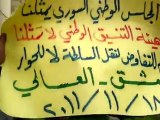 المجلس الوطني السوري يمثلنا
هيئة التنسيق الوطني لا تمثلنا
التفاوض لنقل السلطة لا للحوار
دمشق - العسالي
٢٠١١/١١/١